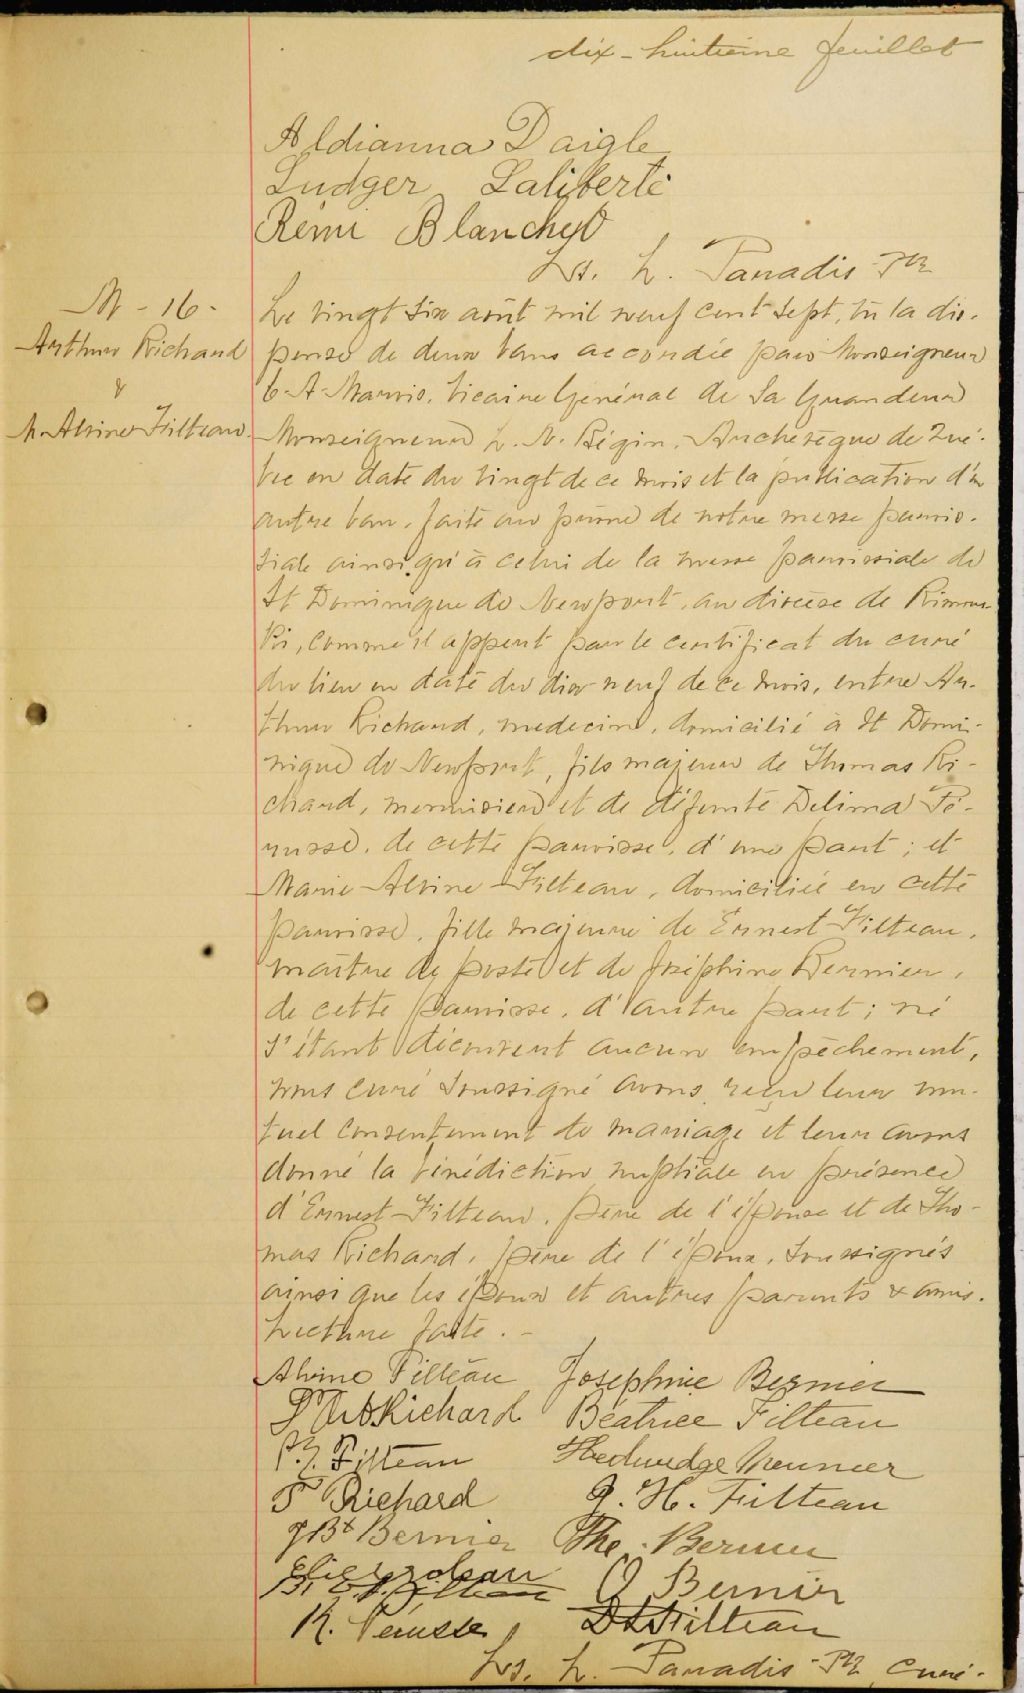 dix-huitième feuillet
Aldianna Daigle
Ludger Laliberté
Rémi Blanchet
Ls. L. Paradis Ptr
M-16-
Arthur Richard
&
M. Alvine Filteau.
Le vingt six août mil neuf cent sept, vu la dis-
pense de deux bans accordée par Monseigneur
C-A-Marois, Vicaire Général de Sa Grandeur
Monseigneur L. N. Bégin, Archevêque de Qué-
bec en date du vingt de ce mois et la publication d'un
autre ban, faite au prône de notre messe parois-
siale ainsi qu'à celui de la messe paroissiale de
St Dominique de Newport, au diocèse de Rimous-
ki, comme il appert par le certificat du curé
du lieu en date du dix neuf de ce mois, entre Ar-
thur Richard, medecin, domicilié à St Domi-
nique de Newport, fils majeur de Thomas Ri-
chard, menuisier et de défunte Delima Pé-
russe, de cette paroisse, d'une part; et
Marie Alvine Filteau, domiciliée en cette
paroisse, fille majeure de Ernest Filteau,
maître de poste et de Joséphine Bernier,
de cette paroisse, d'autre part; ne
s'étant découvert aucun empêchement,
nous curé soussigné avons reçu leur mu-
tuel consentement de mariage et leur avons
donné la bénédiction nuptiale en présence
d'Ernest Filteau, père de l'épouse et de Tho-
mas Richard, père de l'époux, soussignés
ainsi que les époux et autres parents & amis.
Lecture faite.-
Alvine Filteau Josephine Bernier
Richard Béatrice Filteau
Filteau Hedwidge Meunier
T Richard J. H. Filteau
J Bt Bernier The. Bernier
Filteau O Bernier
R. Pérusse Filteau
Ls. L. Paradis Ptr, curé-